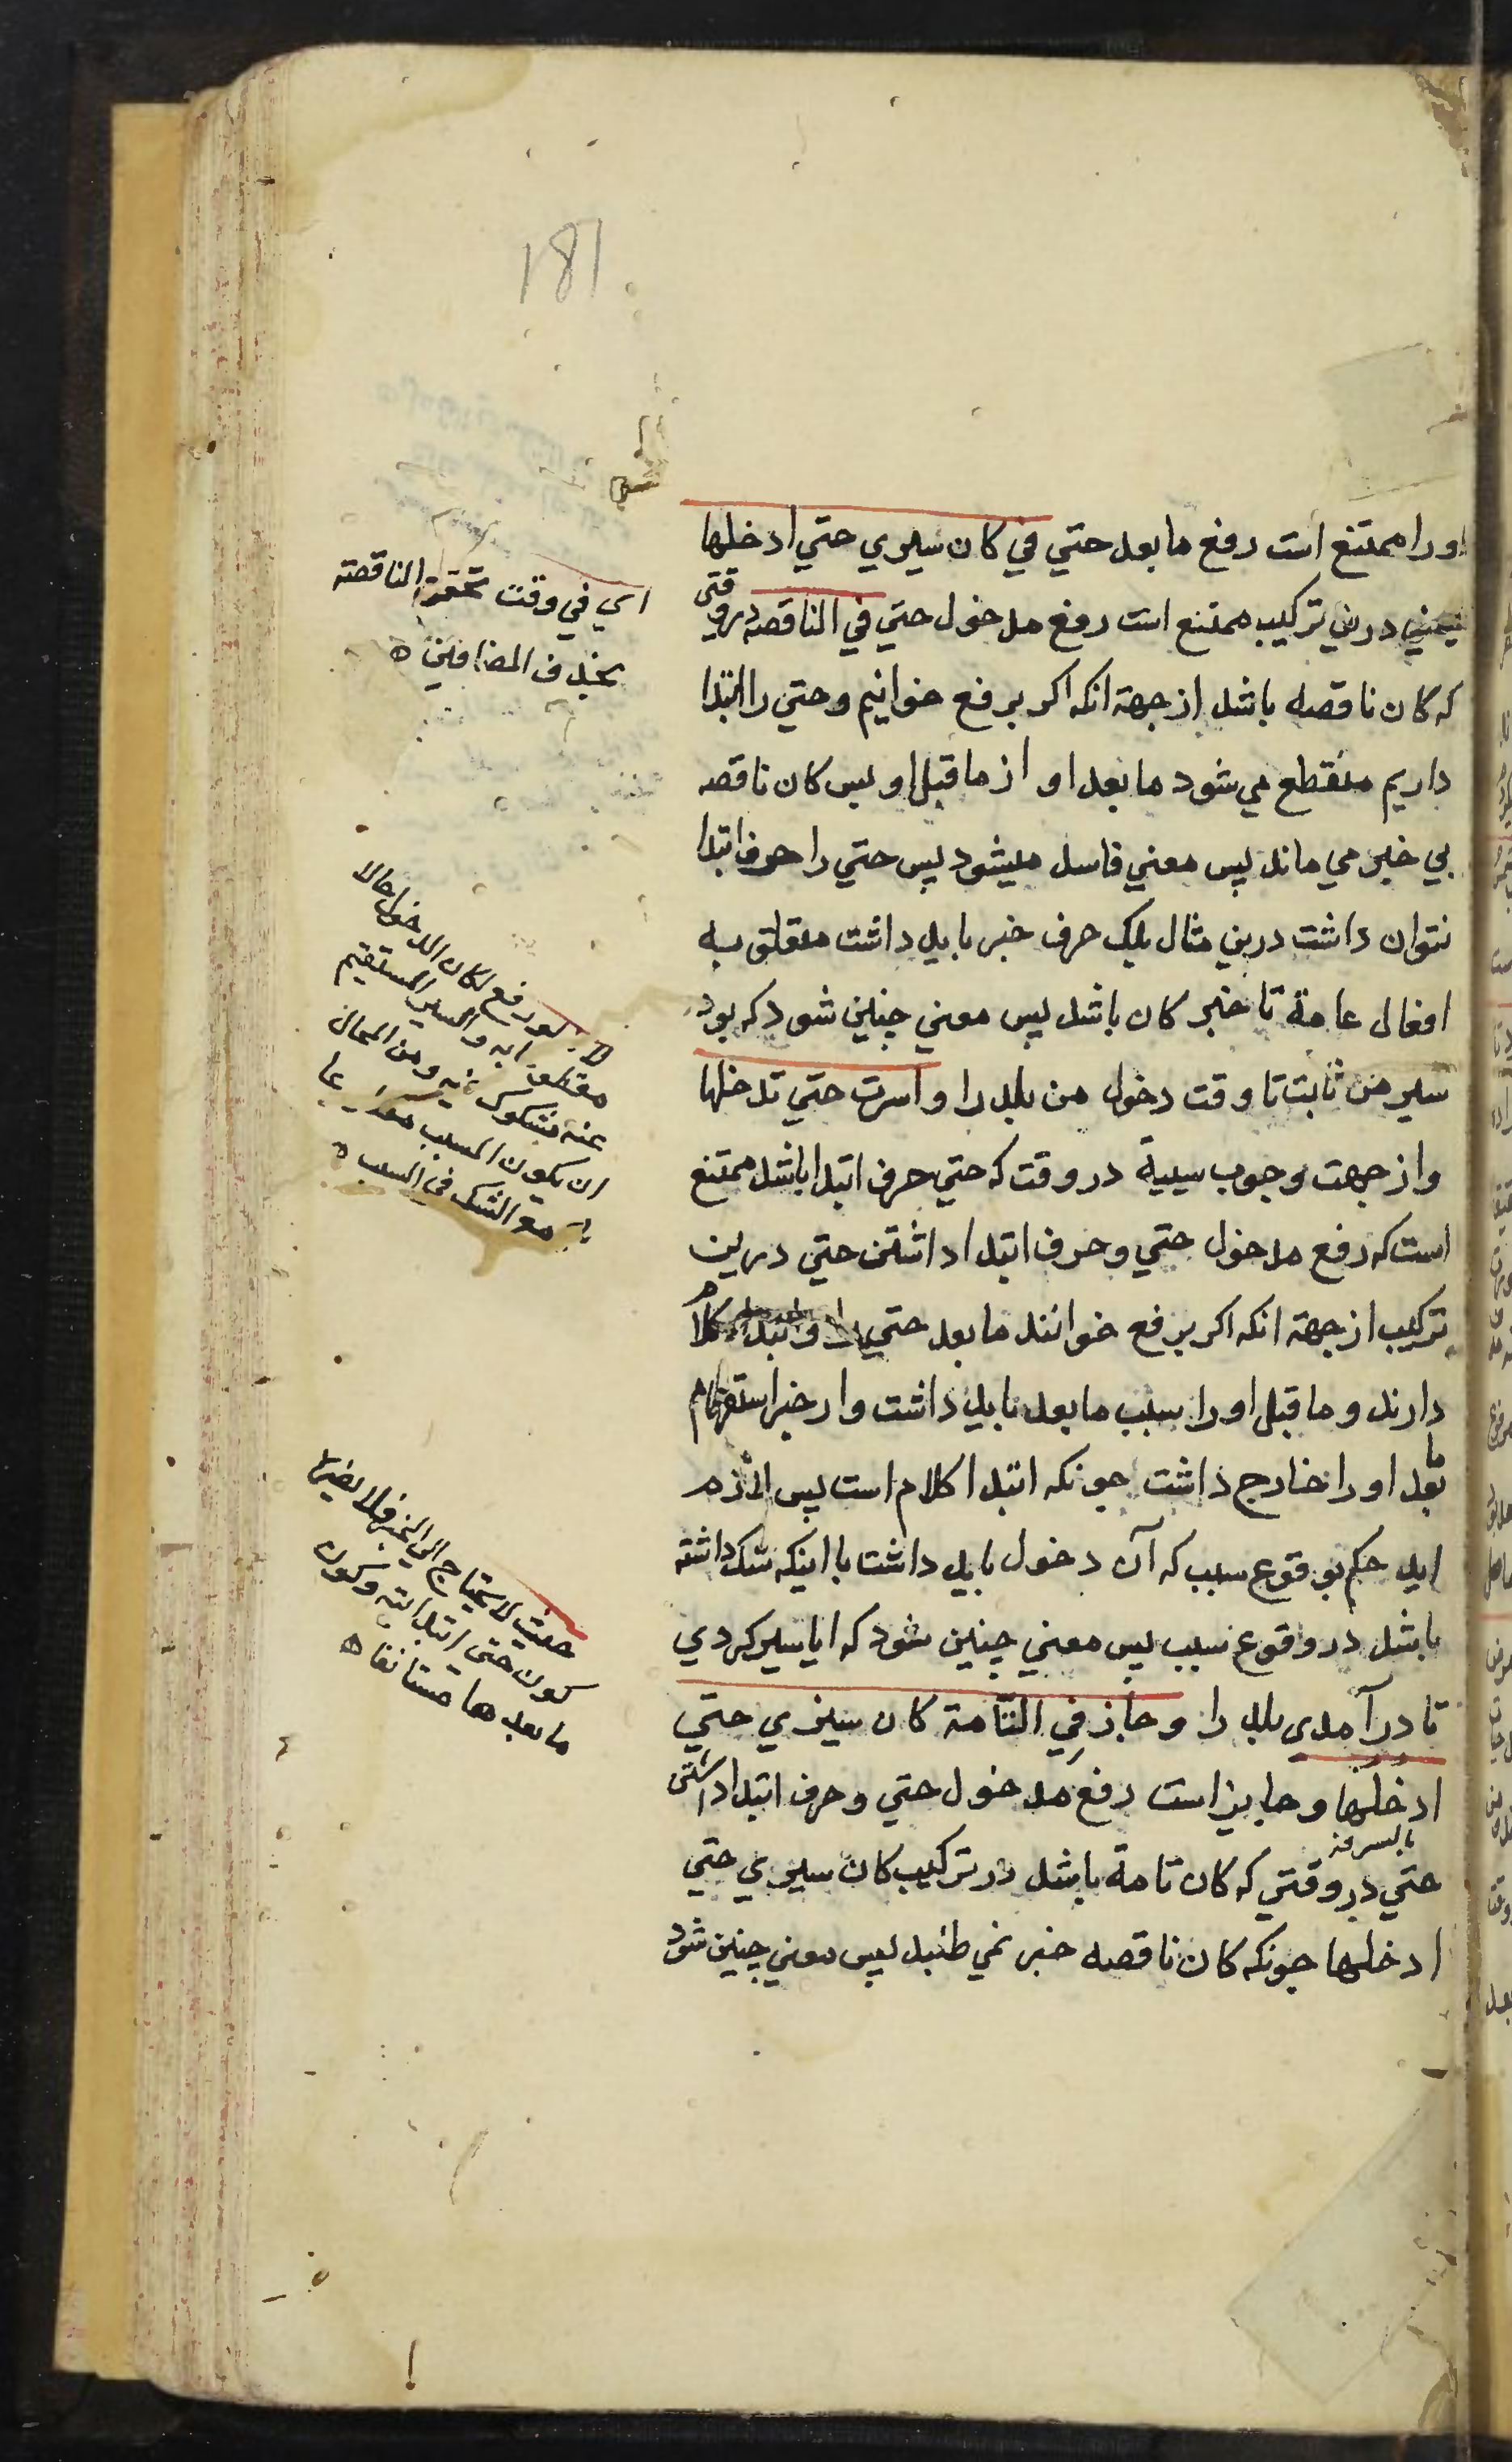 181
او را ممتنع است رفع ما بعد حتي في كان سيري حتي ادخلها
يعني درين تركيب ممتنع است رفع مدخول حتي في الناقصه در وقتى
كه كان ناقصه باشد از جهة انكه اكر برفع خوانيم و حتي را ابتدا
داريم منقطع مي شود ما بعد او از ما قبل او پس كان ناقصه
بي خبر مي ماند پس معني فاسد ميشود پس حتي را حرف ابتدا
نتوان داشت درين مثال بلك حرف جر بايد داشت متعلق به
افعال عامة تا خبر كان باشد پس معني چنين شود كه بود
سير من ثابت تا وقت دخول من بلد را و اسرت حتي تدخلها
و از جهت وجوب سببية در وقت كه حتي حرف ابتدا باشد ممتنع
است كه رفع مدخول حتي و حرف ابتدا داشتن حتي درين
تركيب از جهة انكه اكر برفع خوانند ما بعد حتي را و ابتدا كلام
دارند و ما قبل او را سبب ما بعد بايد داشت و از خبر استفهام
ما بعد او را خارج داشت چونكه ابتدا كلام است پس لازم
ايد حكم بوقوع سبب كه آن دخول بايد داشت با اينكه شك داشته
باشد در وقوع سبب پس معني چنين شود كه ايا سير كردي
تا در آمدي بلد را و جاز في التّامة كان سيري حتي
ادخلها و جايز است رفع مدخول حتي و حرف ابتدا داشتى
حتي در وقتي كه كان تامة باشد در تركيب كان سيري حتي
ادخلها چونكه كان ناقصه خبر نمي طلبد پس معني چنين شود
اي في وقت تحقق الناقصته
بحذف المضافين ه
لو رفع لكان الدخول حالا
عنه مشكوك فيه و من المحال
ان يكون المسبب
مع الشك في السبب ه
حيث لا يحتاج الي الخبر فلا يضرها
كون حتى ابتدائية و كون
ما بعدها مستانفا ه